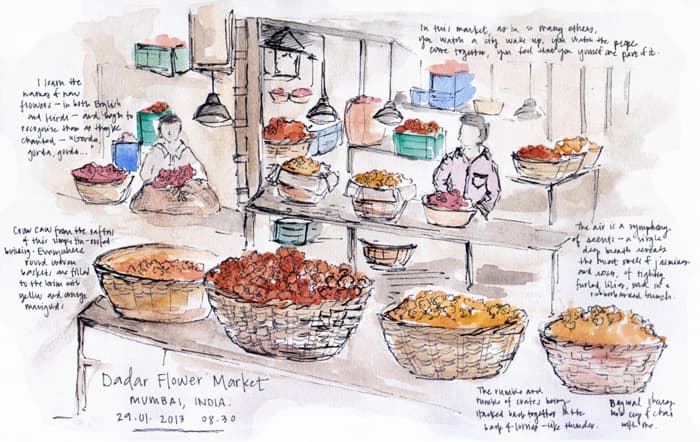 In this market, as in so many others,
you watch a city wake up, you watch the people
come together, you feel like you yourself are part of it.
I learn the
names of new
flowers – in both English
and Hindi – and begin to
recognize them as they're
chanted – "Gonda
gonda, gonda...
Crows caw from the rafters
of this simple tin-roofed
building. Everywhere
round woven
baskets are filled
to the brim with
yellow and orange
marigolds.
The air is a symphony
of scents – a single
deep breath reveals
the sweet smell of jasmine
and roses, of tightly
furled lilies, sold in a
rubberbanded bunch.
Dadar Flower Market
MUMBAI, INDIA.
29.01.2013 08.30
The rumble and
tumble of crates being
stacked back together in the
back of lorries – like thunder.
shares
his cup of chai
with me.